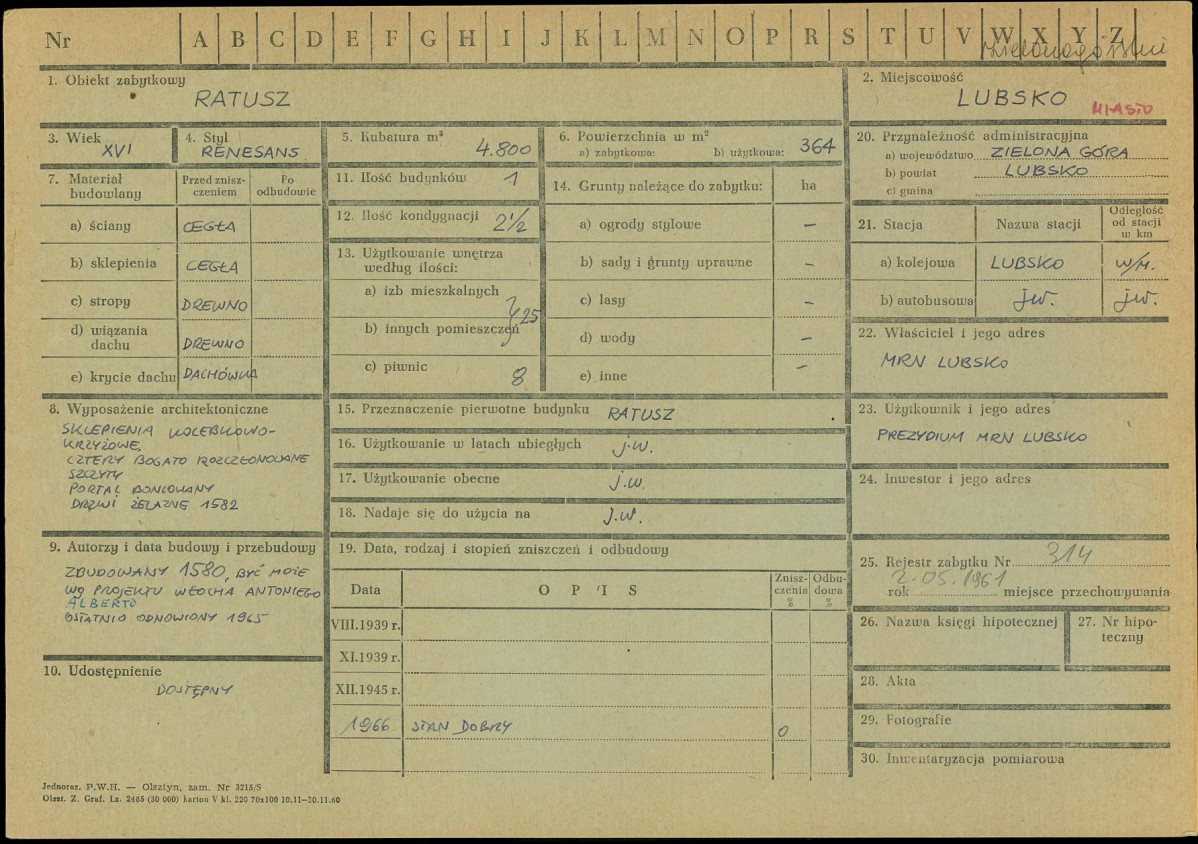 Nr A B C D E F G H I J K L M N O P R S T U V W X Y Z
1. Obiekt zabytkowy
RATUSZ
2. Miejscowość
LUBSKO MIASTO
3. Wiek
XVI
4. Styl
RENESANS
5. Kubatura m³
4.800
6. Powierzchnia w m²
a) zabytkowa: b) użytkowa: 364
20. Przynależność administracyjna
a) województwo ZIELONA GÓRA
b) powiat LUBSKO
c) gmina
7. Materiał budowlany
Przed zniszczeniem
Po odbudowie
a) ściany CEGŁA
b) sklepienia CEGŁA
c) stropy DREWNO
d) wiązania dachu DREWNO
e) krycie dachu DACHÓWKA
11. Ilość budynków 1
12. Ilość kondygnacji 2 1/2
13. Użytkowanie wnętrza
według ilości:
a) izb mieszkalnych
b) innych pomieszczeń
25
c) piwnic 8
14. Grunty należące do zabytku: ha
a) ogrody stylowe –
b) sady i grunty uprawne –
c) lasy –
d) wody –
e) inne –
21. Stacja Nazwa stacji Odległość od stacji w km
a) kolejowa LUBSKO w/m.
b) autobusowa jw. jw.
22. Właściciel i jego adres
MRN LUBSKO
8. Wyposażenie architektoniczne
SKLEPIENIA KOLEBKOWO-
KRZYŻOWE,
CZTERY BOGATO ROZCZŁONOWANE
SZCZYTY
PORTAL BONIOWANY
DRZWI ŻELAZNE 1582
15. Przeznaczenie pierwotne budynku RATUSZ
16. Użytkowanie w latach ubiegłych j.w.
17. Użytkowanie obecne j.w.
18. Nadaje się do użycia na j.w.
23. Użytkownik i jego adres
PREZYDIUM MRN LUBSKO
24. Inwestor i jego adres
9. Autorzy i data budowy i przebudowy
ZBUDOWANY 1580, BYĆ MOŻE
WG PROJEKTU WŁOCHA ANTONIEGO
ALBERTO
OSTATNIO ODNOWIONY 1965
19. Data, rodzaj i stopień zniszczeń i odbudowy
Data OPIS Zniszczenia % Odbudowa %
VIII.1939 r.
XI.1939 r.
XII.1945 r.
1966 STAN DOBRY 0
25. Rejestr zabytku Nr 314
2.05.1961
rok miejsce przechowywania
26. Nazwa księgi hipotecznej
27. Nr hipo-
teczny
10. Udostępnienie
DOSTĘPNY
28. Akta
29. Fotografie
30. Inwentaryzacja pomiarowa
Jednoraz. P.W.H. — Olsztyn, zam. Nr 3215/S
Olszt. Z. Graf. Lz. 2485 (30 000) karton V kl. 220 70x100 10.11—30.11.60